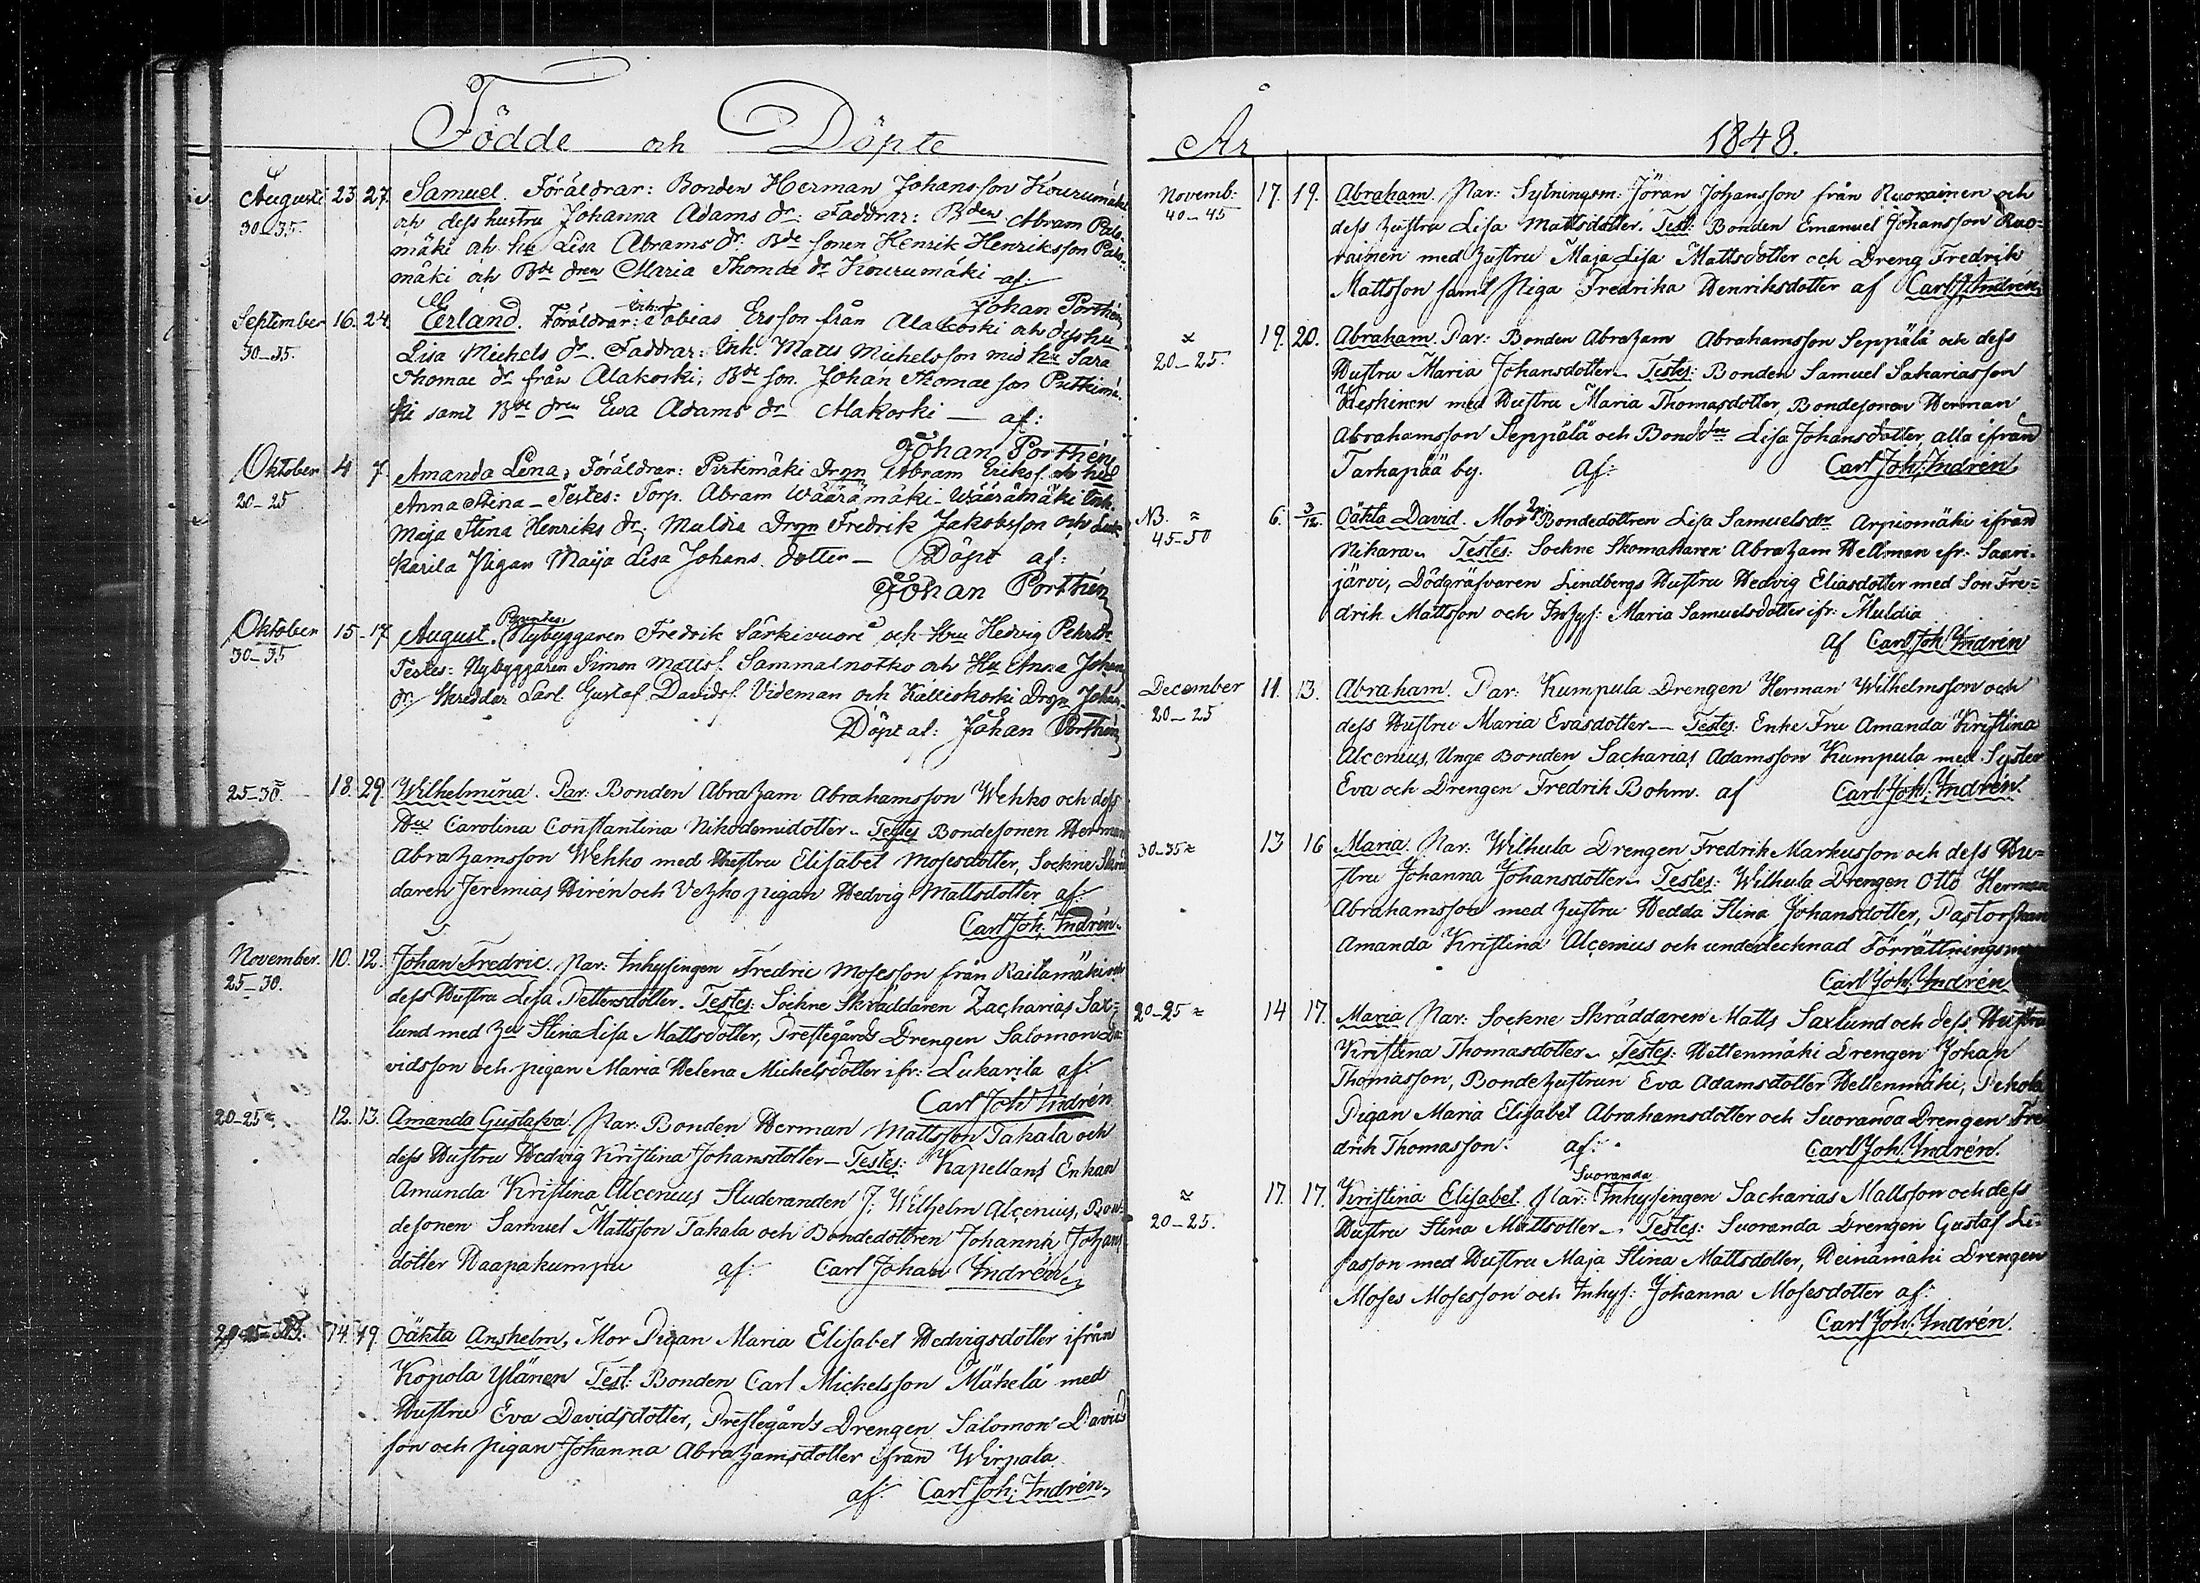 Födde och Döpte
Augusti 23. 27. Samuel. Föräldrar: Bonden Herman Johansson Kourumäki
30-35. och dess hustru Johanna Adams dr: Faddrar: Bden Abram Palo-
mäki och hu Lisa Abrams dr. Bde sonen Henrik Henriksson Palo-
mäki och Bde dren Maria Thomæ dr Kourumäki af:
Johan Porthén
September 16. 24. Erland. Föräldrar: Inh. Tobias Ersson från Alakoski och dess hu
30-35. Lisa Michels dr. Faddrar: Inh. Matts Michelsson med hu Sara
Thomæ dr från Alakoski, Bde son. Johan Thomæ son Pirttimä-
ki samt Bde dren Ewa Adams dr Alakoski — af:
Johan Porthén
Oktober 4 7. Amanda Lena; Föräldrar: Pirtimäki Drgn Abram Eriks. och hu
20-25 Anna Stina – Testes: Torp. Abram Wäärämäki – Wäärämäki Inh.
Maja Stina Henriks dr; Muldia Drgn Fredrik Jakobsson och Luk-
karila Pigan Maija Lisa Johans dotter – Döpt af:
Johan Porthén
Oktober 15-17 August. Parentes: Nybyggaren Fredrik Särkivuori och Hu Hedvig Pehrdr
30-35 Testes: Nybyggaren Simon Matts. Sammalnotko och Hu Anna Johan
dr Skreddar Carl Gustaf Davids. Videman och Kalliokoski Drgn Johan
Döpt af: Johan Porthén
25-30. 18. 29. Wilhelmina. Par: Bonden Abraham Abrahamsson Wehko och dess
Hu Carolina Constantina Nikodemidotter – Testes Bondesonen Herman
Abrahamsson Wehko med Hustru Elisabet Mosesdotter, Sockne Skräd
daren Jeremias Hirén och Vehko pigan Hedvig Mattsdotter af:
Carl Joh. Indrén.
November. 10. 12. Johan Fredric. Par: Inhysingen Fredric Mosesson från Raitamäki och
25-30. dess Hustru Lisa Pettersdotter. Testes: Sockne Skräddaren Zacharias Sax-
lund med hu Stina Lisa Mattsdotter, Prestegårds Drengen Salomon Da-
vidsson och pigan Maria Helena Michelsdotter ifr: Lukarila af:
Carl Joh Indrén
20-25 12. 13. Amanda Gustafva. Par: Bonden Herman Mattsson Takala och
dess Hustru Hedvig Kristina Johansdotter – Testes: Kapellans Enkan
Amanda Kristina Alcenius, Studeranden J. Wilhelm Alcenius, Bon-
desonen Samuel Mattsson Takala och Bondedottren Johanna Johans
dotter Haapakumpu af: Carl Johan Indrén
NB. 14. 19. Oäkta Anshelm, Mor Pigan Maria Elisabet Hedvigsdotter ifrån
Kopola Ylänen Test: Bonden Carl Mickelsson Mäkelä med
Hustru Eva Davidsdotter, Prestegårds Drengen Salomon Davids
son och pigan Johanna Abrahamsdotter ifrån Wirpala
af: Carl Joh: Indrén,
År 1848.
Novemb: 17. 19. Abraham. Par: Sytningsm: Jöran Johansson från Ruorainen och
40-45 dess hustru Lisa Mattsdotter. Test: Bonden Emanuel Johansson Ruo-
rainen med hustru Maja Lisa Mattsdotter och Dreng Fredrik
Mattsson samt Piga Fredrika Henriksdotter af Carl J. Indrén.
20-25. 19. 20. Abraham. Par: Bonden Abraham Abrahamsson Seppälä och dess
Hustru Maria Johansdotter – Testes: Bonden Samuel Sakariasson
Keskinen med Hustru Maria Thomasdotter, Bondesonen Herman
Abrahamsson Seppälä och Bonddn Lisa Johansdotter, alla ifrån
Tarhapää by. Af: Carl Joh: Indrén,
NB. 6. 3/12. Oäkta David. Mor Bondedottren Lisa Samuelsdr Arpiomäki ifrån
45-50 Nikara. Testes: Sockne Skomakaren Abraham Hellman ifr: Saari-
järvi, Dödgräfvaren Lindbergs Hustru Hedvig Eliasdotter med Son Fre-
drik Mattsson och Inhys: Maria Samuelsdotter ifr: Muldia
af Carl Joh: Indrén
December 11. 13. Abraham. Par: Kumpula Drengen Herman Wilhelmsson och
20-25 dess Hustru Maria Evasdotter – Testes: Enke Fru Amanda Kristina
Alcenius, Unge Bonden Sacharias Adamsson Kumpula med Syster
Eva och Drengen Fredrik Bohm. af Carl Joh: Indrén
30-35 13 16 Maria. Par: Wilhula Drengen Fredrik Markusson och dess Hu-
stru Johanna Johansdotter. Testes: Wilhula Drengen Otto Herman
Abrahamsson med hustru Hedda Stina Johansdotter, Pastorskan
Amanda Kristina Alcenius och undertecknad Förrättningsman
Carl Joh: Indrén
20-25 14 17. Maria Par: Sockne Skräddaren Matts Saxlund och dess Hustru
Kristina Thomasdotter. Testes: Hettenmäki Drengen Johan
Thomasson, Bondehustrun Eva Adamsdotter Hettenmäki, Pekola
Pigan Maria Elisabet Abrahamsdotter och Suoranda Drengen Fre
drik Thomasson. af: Carl Joh: Indrén.
17. 17. Kristina Elisabet. Par: Suoranda Inhysingen Sacharias Mattsson och dess
20-25. Hustru Stina Mattsdotter – Testes: Suoranda Drengen Gustaf Li-
sasson med Hustru Maja Stina Mattsdotter, Heinämäki Drengen
Moses Mosesson och Inhys: Johanna Mosesdotter af:
Carl Joh: Indrén.